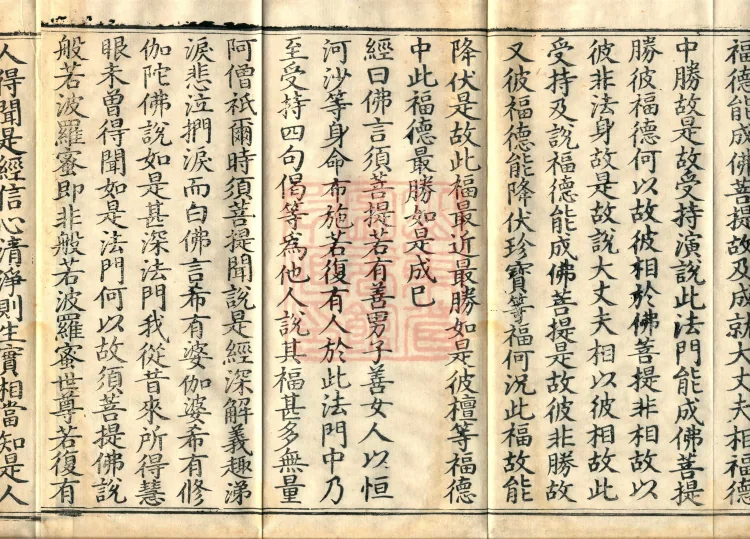 福德能成佛菩提故及成就大丈夫相福德
中勝故是故受持演說此法門能成佛菩提
勝彼福德何以故彼相於佛菩提非相故以
彼非法身故是故說大丈夫相以彼相故此
受持及說福德能成佛菩提是故彼非勝故
又彼福德能降伏珍寶等福何況此福故能
降伏是故此福最近最勝如是彼檀等福德
中此福德最勝如是成已
經曰佛言須菩提若有善男子善女人以恒
河沙等身命布施若復有人於此法門中乃
至受持四句偈等為他人說其福甚多無量
阿僧祇爾時須菩提聞說是經深解義趣涕
淚悲泣捫淚而白佛言希有婆伽婆希有修
伽陀佛說如是甚深法門我從昔來所得慧
眼未曾得聞如是法門何以故須菩提佛說
般若波羅蜜即非般若波羅蜜世尊若復有
人得聞是經信心清淨則生實相當知是人